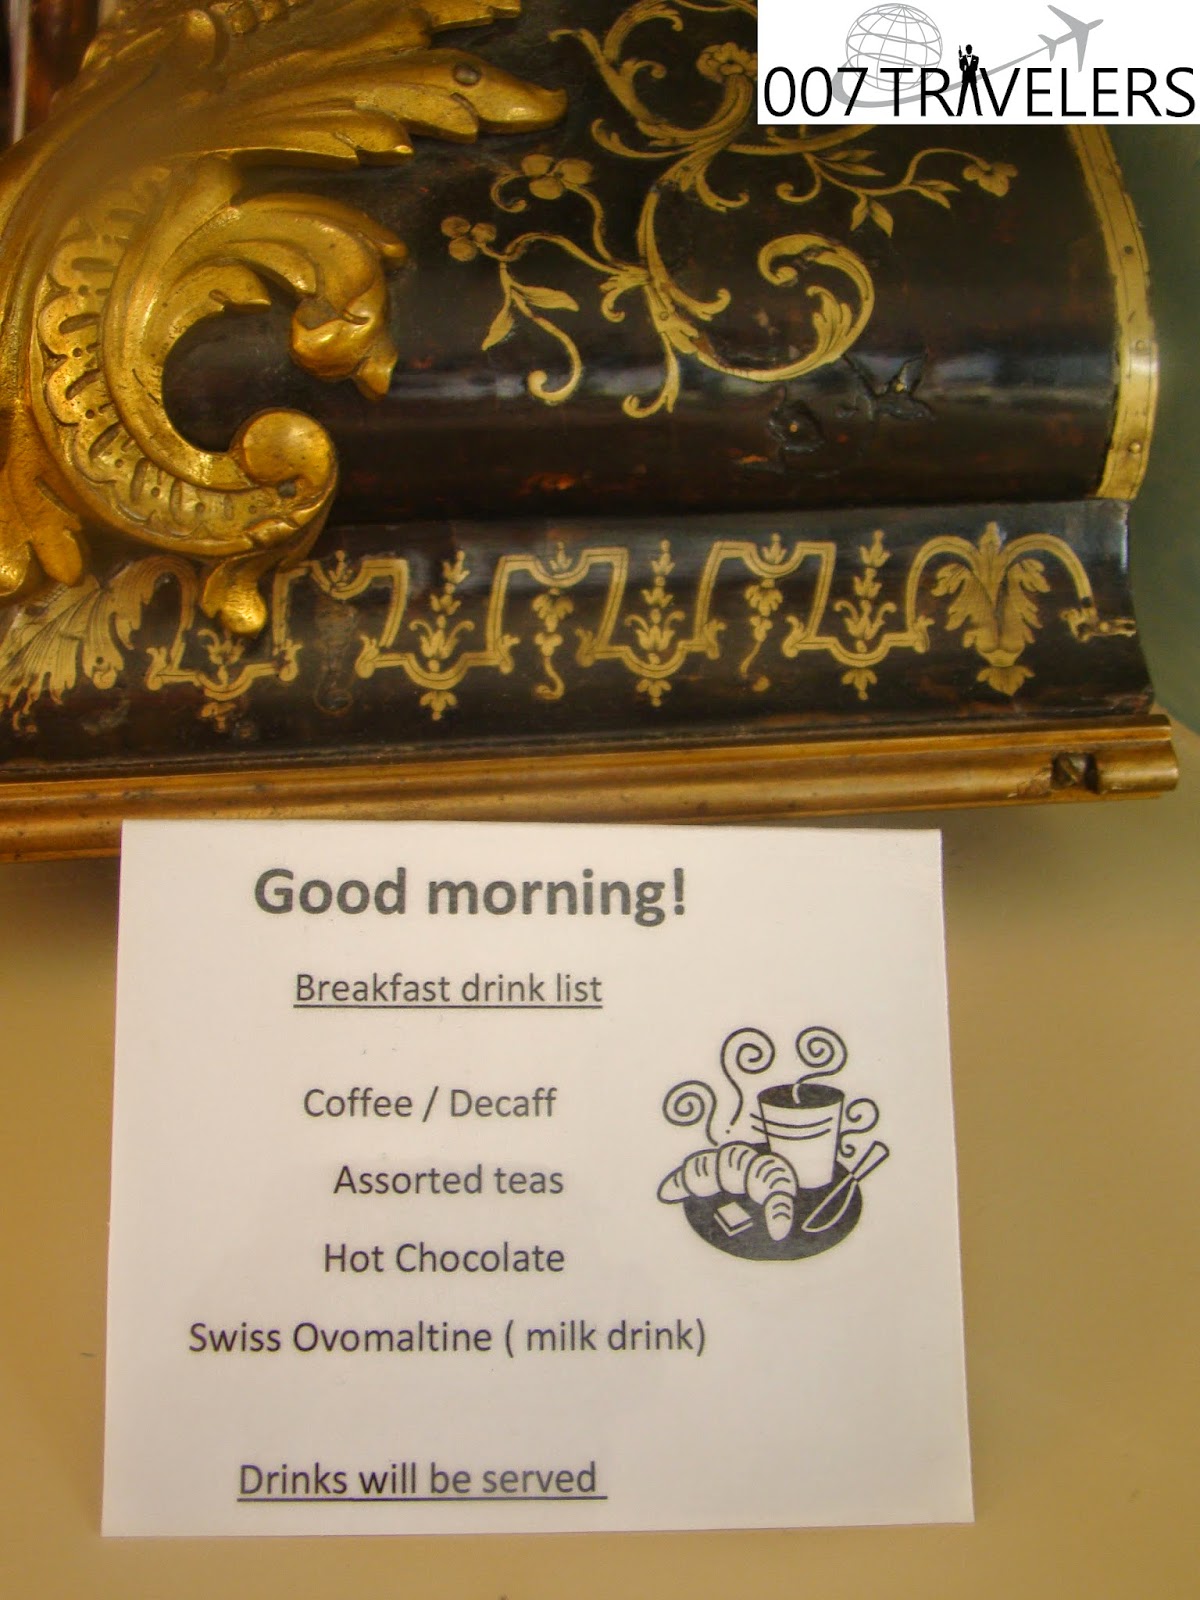 007 TRAVELERS
Good morning!
Breakfast drink list
Coffee / Decaff
Assorted teas
Hot Chocolate
Swiss Ovomaltine ( milk drink)
Drinks will be served